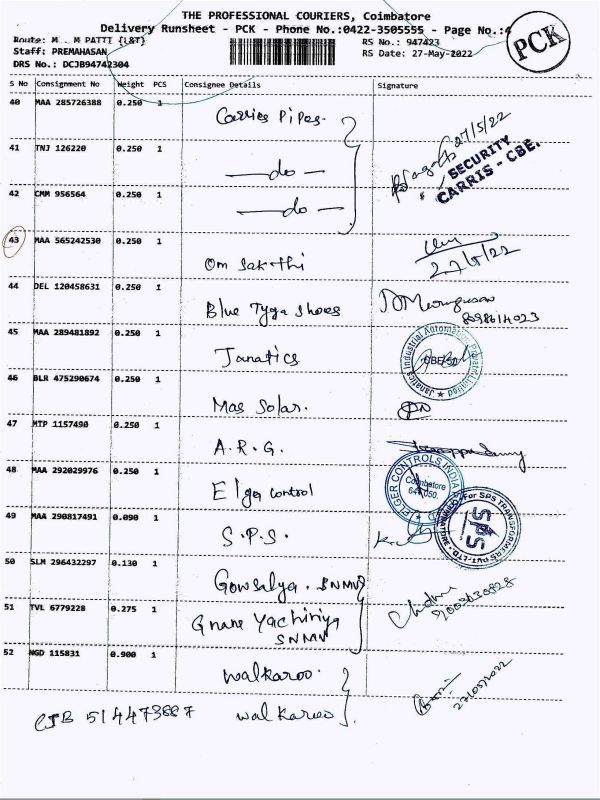 THE PROFESSIONAL COURIERS, Coimbatore
Delivery Runsheet - PCK - Phone No.:0422-3505555 - Page No.:4
PCK
Route: M PATTI {L&T} RS No.: 947423
Staff: PREMAHASAN RS Date: 27-May-2022
DRS No.: DCJB94742304
S No Consignment No Weight PCS Consignee Details Signature
40 MAA 285726388 0.250 1 Carries Pipes. 27/5/22
41 TNJ 126220 0.250 1 —do— SECURITY
CARRIS - CBE.
42 CMM 956564 0.250 1 —do—
43 MAA 565242530 0.250 1 Om Sakthi 27/5/22
44 DEL 120458631 0.250 1 Blue Tyga Shoes
45 MAA 289481892 0.250 1 Janatics Janatics Industrial Automation Private Limited
46 BLR 475290674 0.250 1 Mas Solar.
47 MTP 1157490 0.250 1 A.R.G.
48 MAA 292029976 0.250 1 Elger control ELGER CONTROLS INDIA Coimbatore
49 MAA 290817491 0.090 1 S.P.S. For SPS TRANSFORMERS PVT-LTD COIMBATORE SPS
50 SLM 296432297 0.130 1 Gowsalya. SNMV
51 TVL 6779228 0.275 1 Gnane Yachiriya
SNMV 9003430828
52 NGD 115831 0.900 1 Walkaroo. 27/05/2022
CJB 514473887 Walkaroo